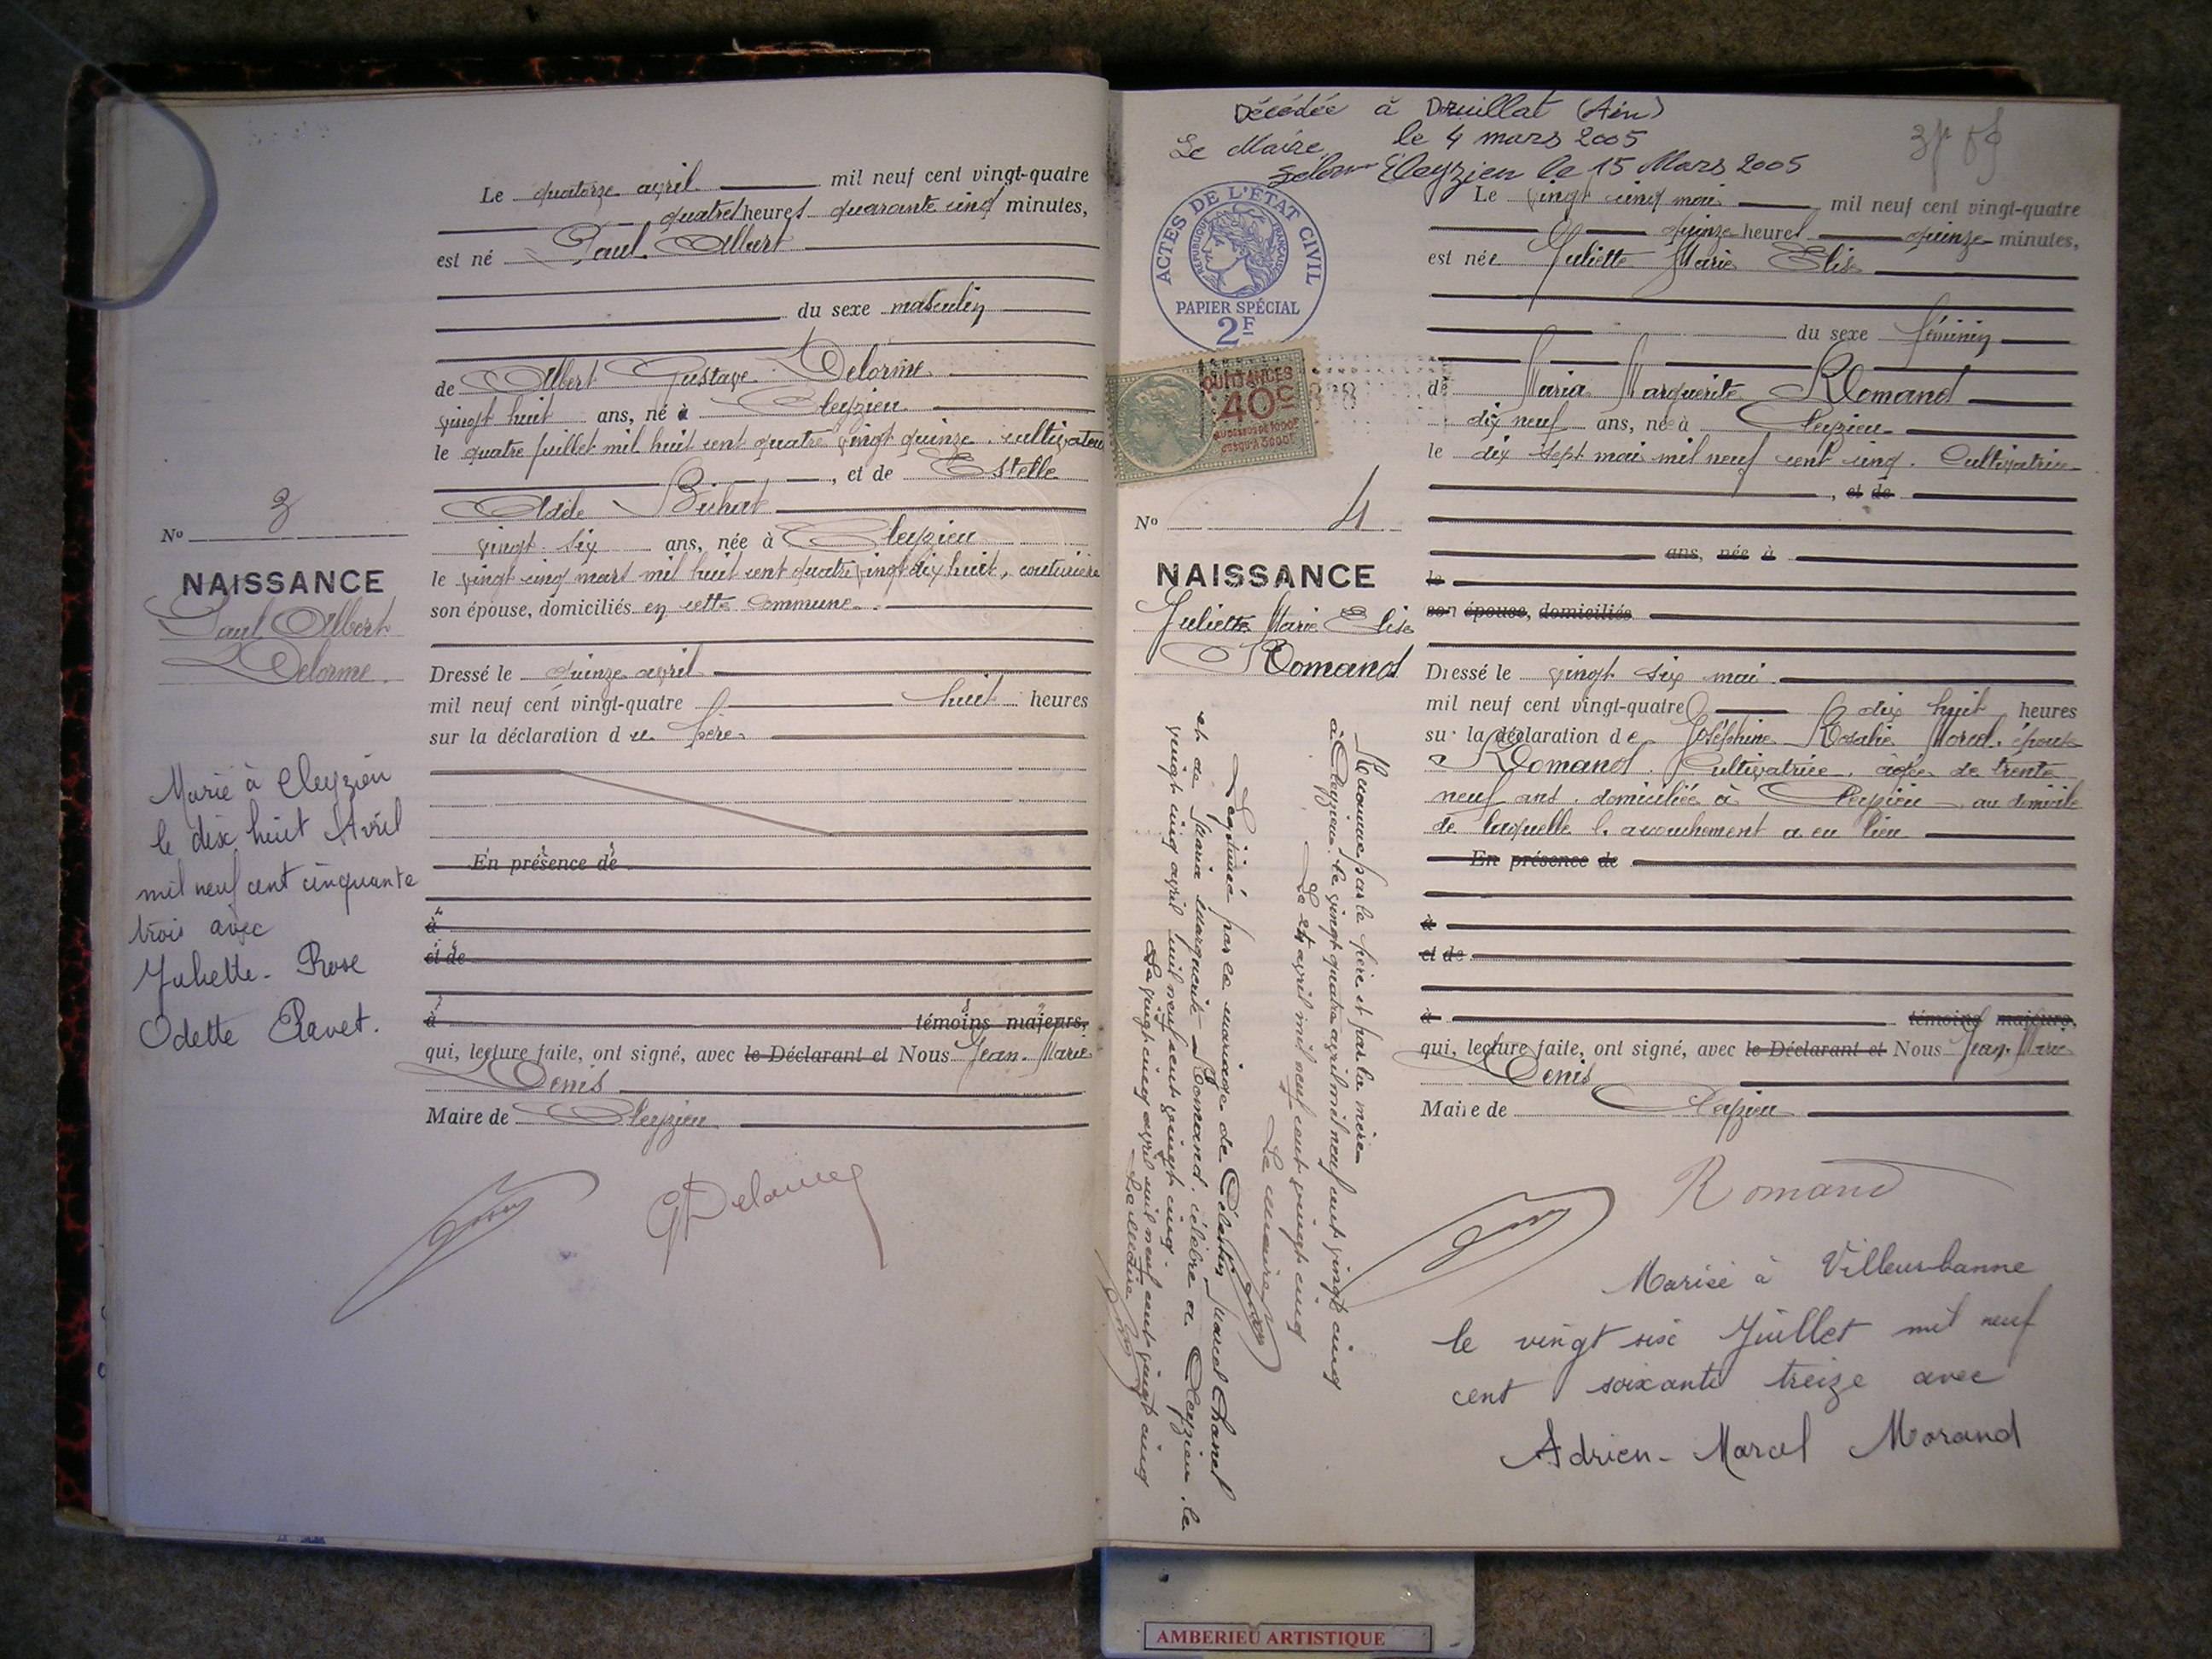 Le quatorze avril mil neuf cent vingt-quatre
quatre heures quarante cinq minutes,
est né Paul Albert
du sexe masculin
de Albert Gustave Delorme
vingt huit ans, né à Cleyzieu
le quatre juillet mil huit cent quatre vingt quinze. cultivateur
, et de Estelle
Adèle
vingt six ans, née à Cleyzieu
le vingt cinq mars mil huit cent quatre vingt dix huit, couturière
son épouse, domiciliés en cette commune.
Dressé le quinze avril
mil neuf cent vingt-quatre huit heures
sur la déclaration du père
En présence de
à
et de
à témoins majeurs,
qui, lecture faite, ont signé, avec le Déclarant et Nous Jean-Marie
Denis
Maire de Cleyzieu
No 3
NAISSANCE
Paul Albert
Delorme.
Marié à Cleyzieu
le dix huit Avril
mil neuf cent cinquante
trois avec
Juliette-Rose
Odette Ravet.
Décédée à Druillat (Ain)
le 4 mars 2005
Le Maire,
Cleyzieu le 15 Mars 2005
ACTES DE L'ETAT CIVIL
REPUBLIQUE FRANÇAISE
PAPIER SPÉCIAL
2F
QUITTANCES
40c
Le vingt cinq mai mil neuf cent vingt-quatre
quinze heures quinze minutes,
est née Juliette Marie Elise
du sexe féminin
de Maria Marguerite Romand
dix neuf ans, née à Cleyzieu
le dix sept mai mil neuf cent cinq. Cultivatrice
, et de
ans, née à
le
son épouse, domiciliés
Dressé le vingt six mai
mil neuf cent vingt-quatre dix huit heures
sur la déclaration de Joséphine Rosalie Morel, épouse
Romand. Cultivatrice, âgée de trente
neuf ans, domiciliée à Cleyzieu, au domicile
de laquelle l'accouchement a eu lieu
En présence de
à
et de
à témoins majeurs,
qui, lecture faite, ont signé, avec le Déclarant et Nous Jean-Marie
Denis
Maire de Cleyzieu
Romand
No 4
NAISSANCE
Juliette Marie Elise
Romand
Reconnue par le père et par la mère
à Cleyzieu le vingt quatre avril mil neuf cent vingt cinq
Le 24 avril mil neuf cent vingt cinq
Le maire
Légitimée par le mariage de Célestin Marcel Chanel
et de Maria Marguerite Romand, célébré à Cleyzieu, le
vingt cinq avril mil neuf cent vingt cinq.
Le vingt cinq avril mil neuf cent vingt cinq
Le Maire
Mariée à Villeurbanne
le vingt six Juillet mil neuf
cent soixante treize avec
Adrien-Marcel Morand
AMBERIEU ARTISTIQUE